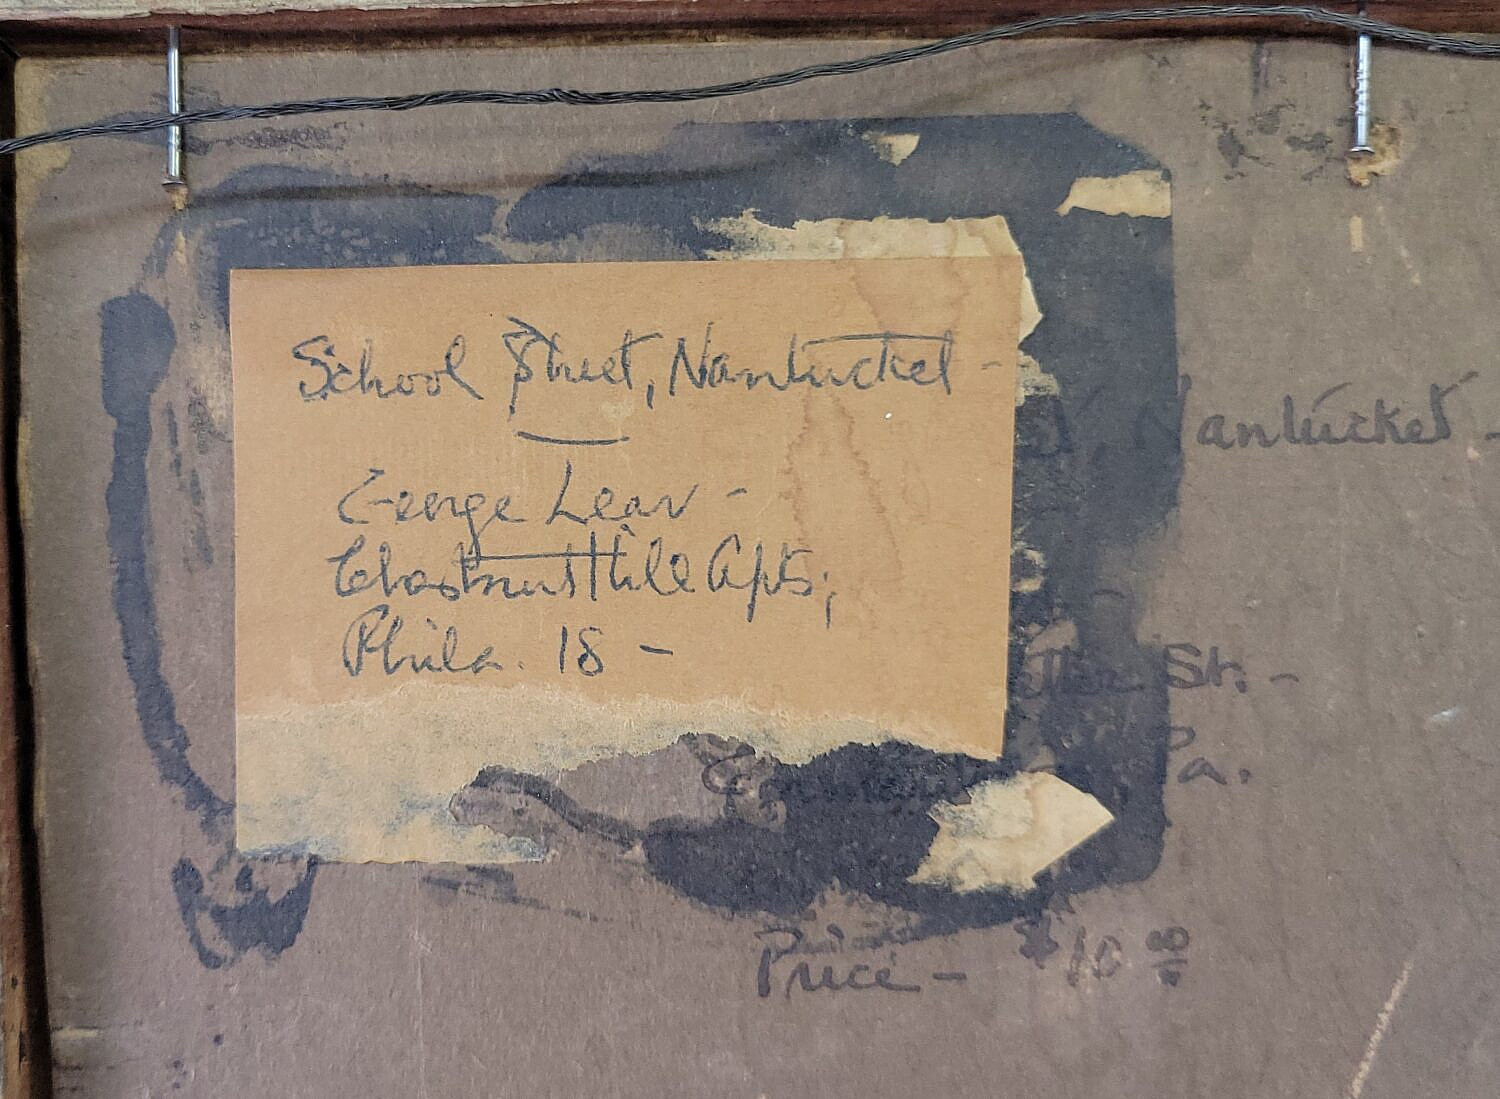 School Street, Nantucket -
George Lear -
Chestnut Hill Apts,
Phila. 18 -
St, Nantucket -
St. -
Pa.
Price - $10 00